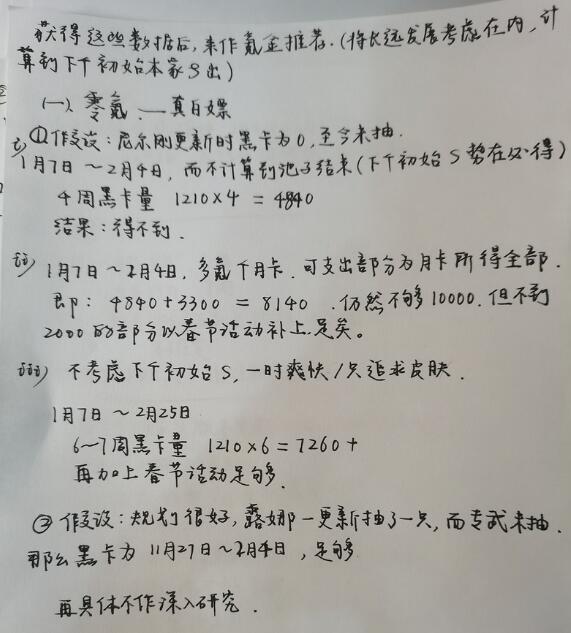 获得这些数据后,来作氪金推荐.(将长远发展考虑在内,计
算到下个初始本家S出)
(一)零氪——真白嫖
i) ①假设:尼尔刚更新时黑卡为0,至今未抽.
1月7日~2月4日,而不计算到池子结束(下个初始S势在必得)
4周黑卡量 1210×4 = 4840
结果:得不到.
ii) 1月7日~2月4日,多氪个月卡.可支出部分为月卡所得全部.
即: 4840+3300 = 8140 .仍然不够10000.但不到
2000的部分以春节活动补上足矣。
iii) 不考虑下个初始S,一时爽快/只追求皮肤.
1月7日~2月25日
6~7周黑卡量 1210×6=7260+
再加上春节活动足够.
② 假设:规划很好,露娜一更新抽了一只,而专武未抽.
那么黑卡为 11月27日~2月4日,足够
再具体不作深入研究.